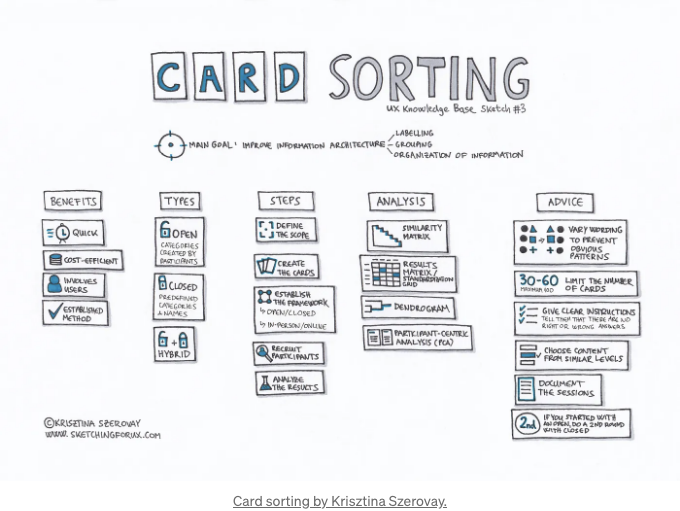 CARD SORTING
UX Knowledge Base Sketch #3
MAIN GOAL: IMPROVE INFORMATION ARCHITECTURE
LABELLING
GROUPING
ORGANIZATION OF INFORMATION
BENEFITS
QUICK
COST-EFFICIENT
INVOLVES
USERS
ESTABLISHED
METHOD
TYPES
OPEN
CATEGORIES
CREATED BY
PARTICIPANTS
CLOSED
PREDEFINED
CATEGORIES
& NAMES
+
HYBRID
STEPS
DEFINE
THE SCOPE
CREATE
THE CARDS
ESTABLISH
THE FRAMEWORK
OPEN/CLOSED
IN-PERSON/ONLINE
RECRUIT
PARTICIPANTS
ANALYZE
THE RESULTS
ANALYSIS
SIMILARITY
MATRIX
RESULTS
MATRIX/
STANDARDIZATION
GRID
DENDROGRAM
PARTICIPANT-CENTRIC
ANALYSIS (PCA)
ADVICE
VARY WORDING
TO PREVENT
OBVIOUS
PATTERNS
30-60
MAXIMUM 100
LIMIT THE NUMBER
OF CARDS
GIVE CLEAR INSTRUCTIONS
TELL THEM THAT THERE ARE NO
RIGHT OR WRONG ANSWERS
CHOOSE CONTENT
FROM SIMILAR LEVELS
DOCUMENT
THE SESSIONS
2nd
IF YOU STARTED WITH
AN OPEN, DO A 2ND ROUND
WITH CLOSED
©KRISZTINA SZEROVAY
WWW.SKETCHINGFORUX.COM
Card sorting by Krisztina Szerovay.